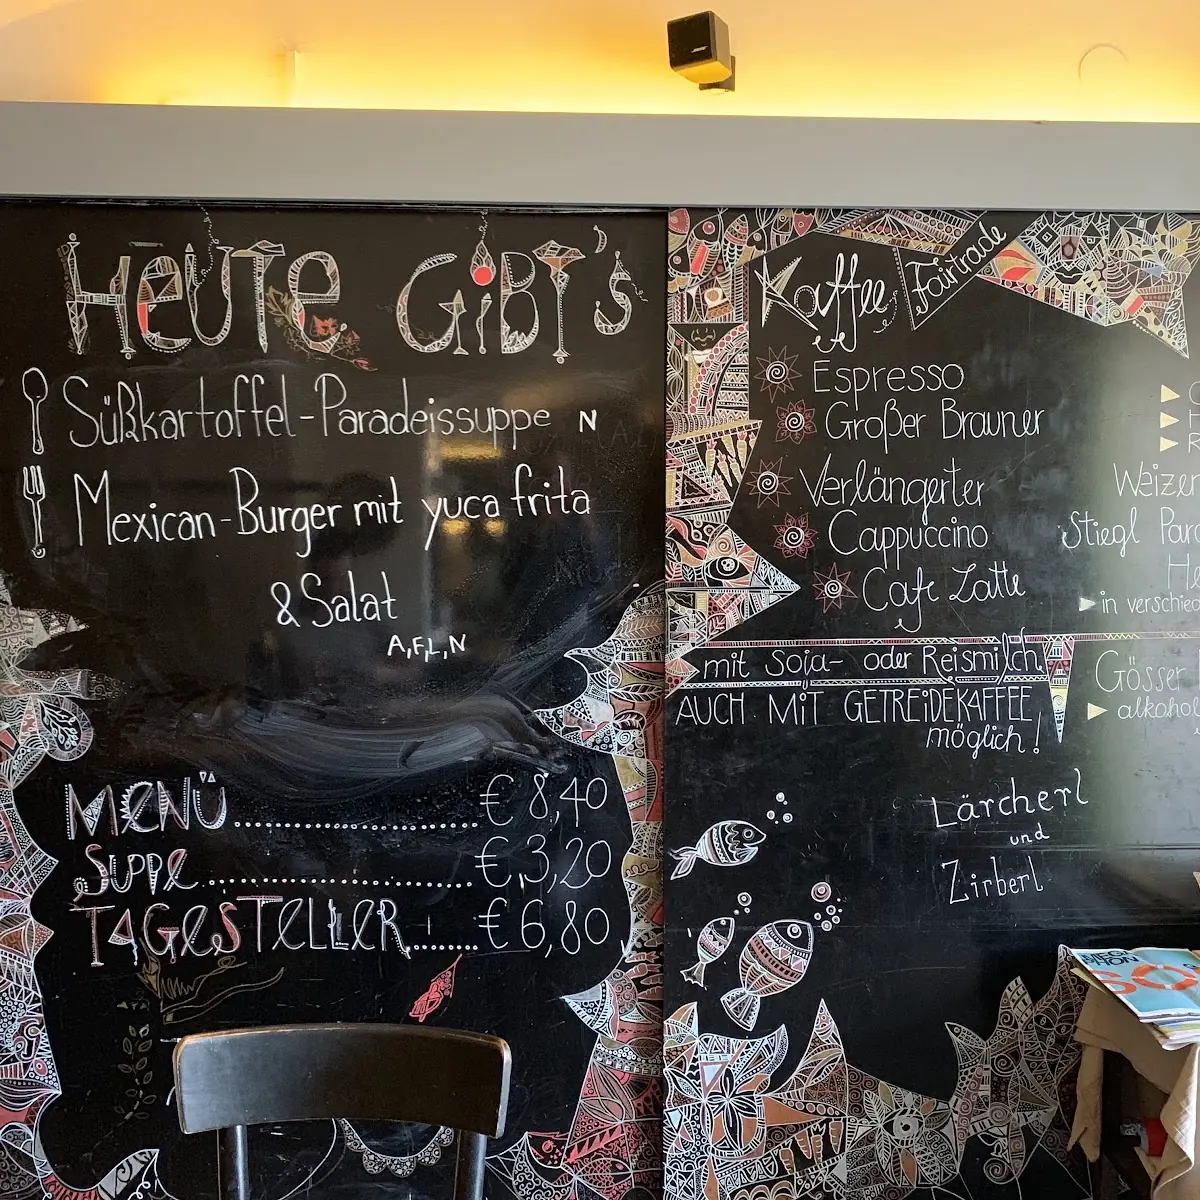 HEUTE GIBT'S
Süßkartoffel-Paradeissuppe N
Mexican-Burger mit yuca frita
& Salat
A, F, L, N
MENÜ € 8,40
SUPPE € 3,20
TAGESTELLER € 6,80
Kaffee Fairtrade
Espresso
Großer Brauner
Verlängerter
Cappuccino
Cafe Latte
mit Soja- oder Reismilch
AUCH MIT GETREIDEKAFFEE
möglich!
Lärcherl
und
Zirberl
Weizen
Stiegl
in
Gösser
BOSE
SO